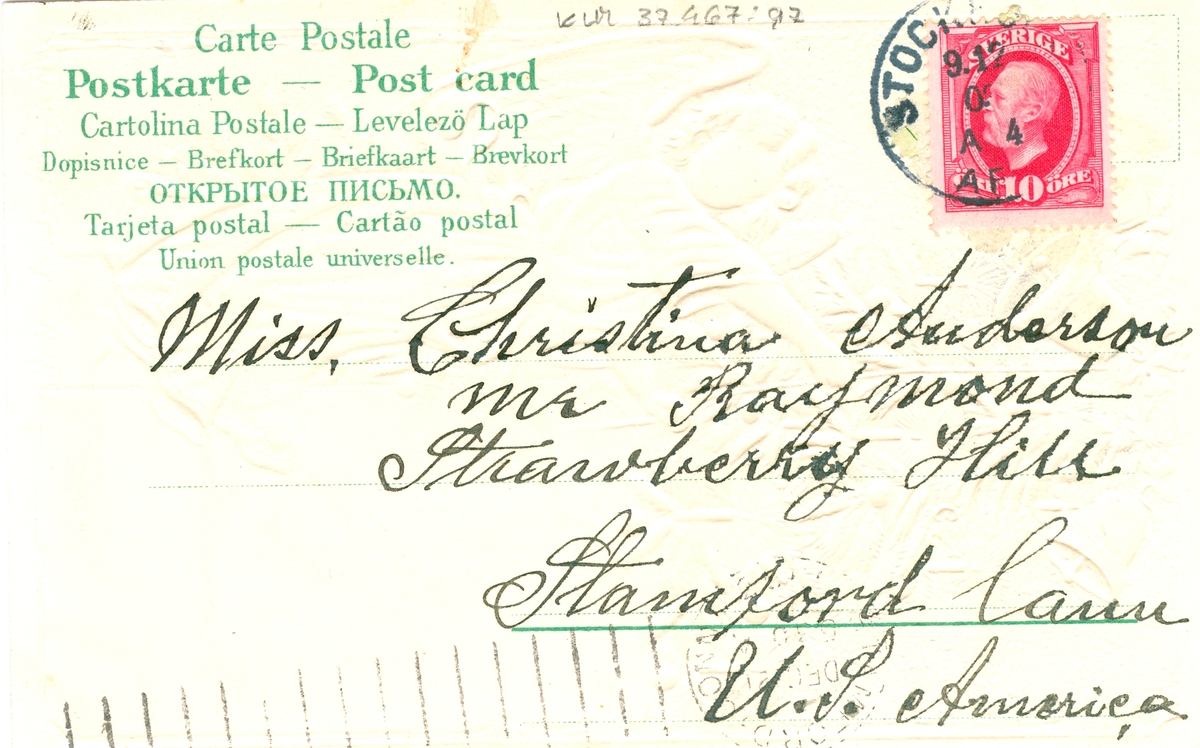 KUR 37.467:97
Carte Postale
Postkarte — Post card
Cartolina Postale — Levelezö Lap
Dopisnice – Brefkort – Briefkaart – Brevkort
ОТКРЫТОЕ ПИСЬМО.
Tarjeta postal — Cartão postal
Union postale universelle.
SVERIGE
10 ÖRE
9.12
A 4
Miss, Christina Anderson
mr Raymond
Strawberry Hill
Stamford Conn
U.S. America